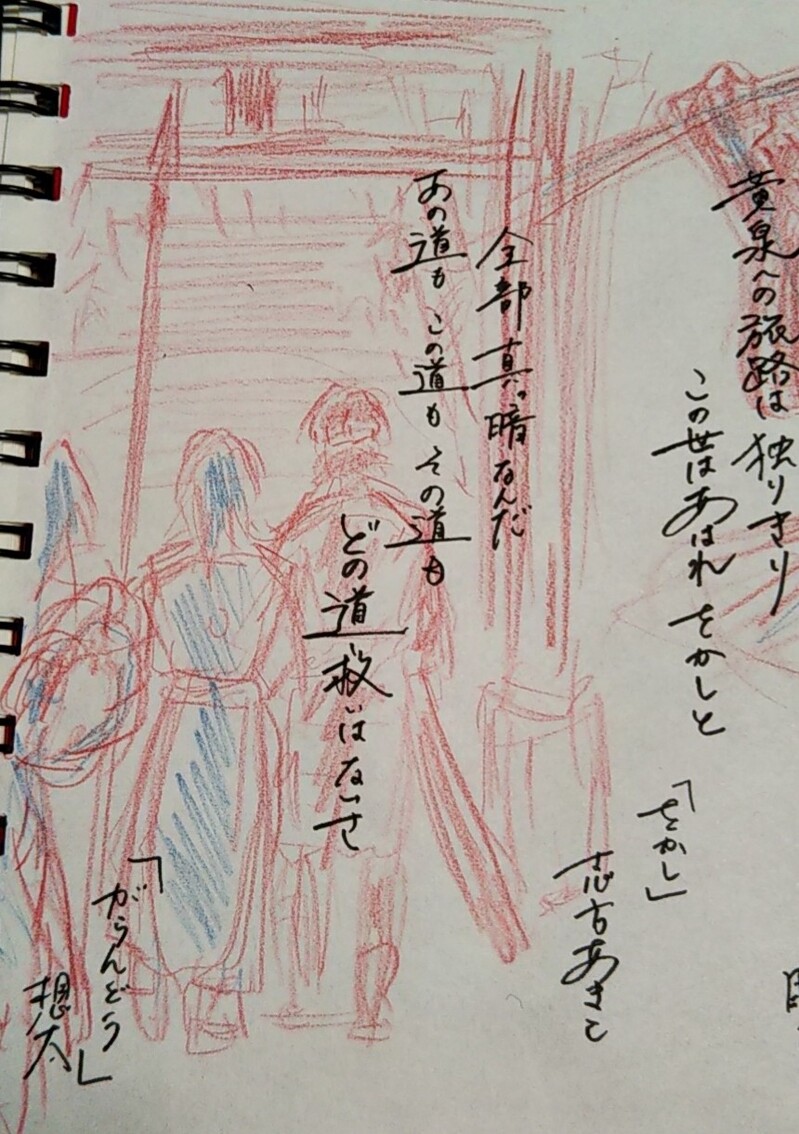 黄泉への旅路は 独りきり
この世はあはれ をかしと
「をかし」
志方あきこ
全部 真っ暗なんだ
あの道も この道も その道も
どの道救いはないさ
「がらんどう」
想太